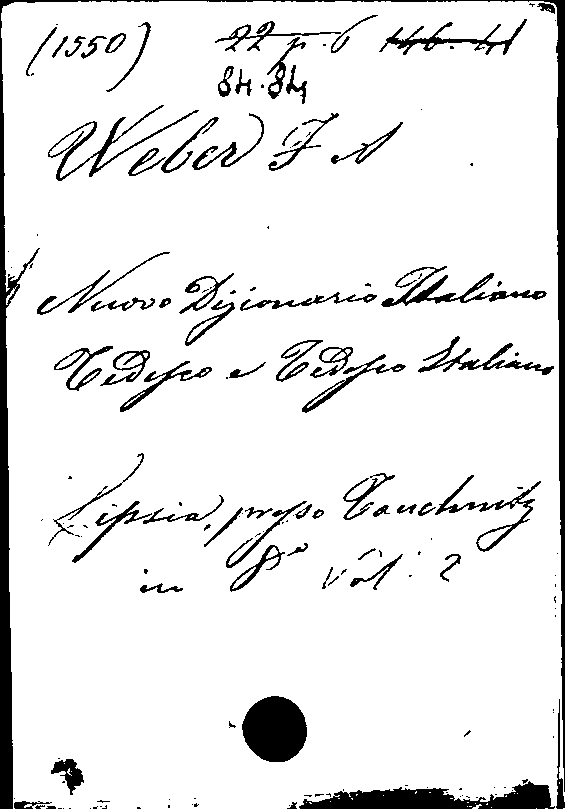 (1550) 22 p. 6 146. 41
84.84
Weber F A
Nuovo Dizionario Italiano
Tedesco e Tedesco Italiano
Lipsia, presso Tauchnitz
in 8º Vol: 2